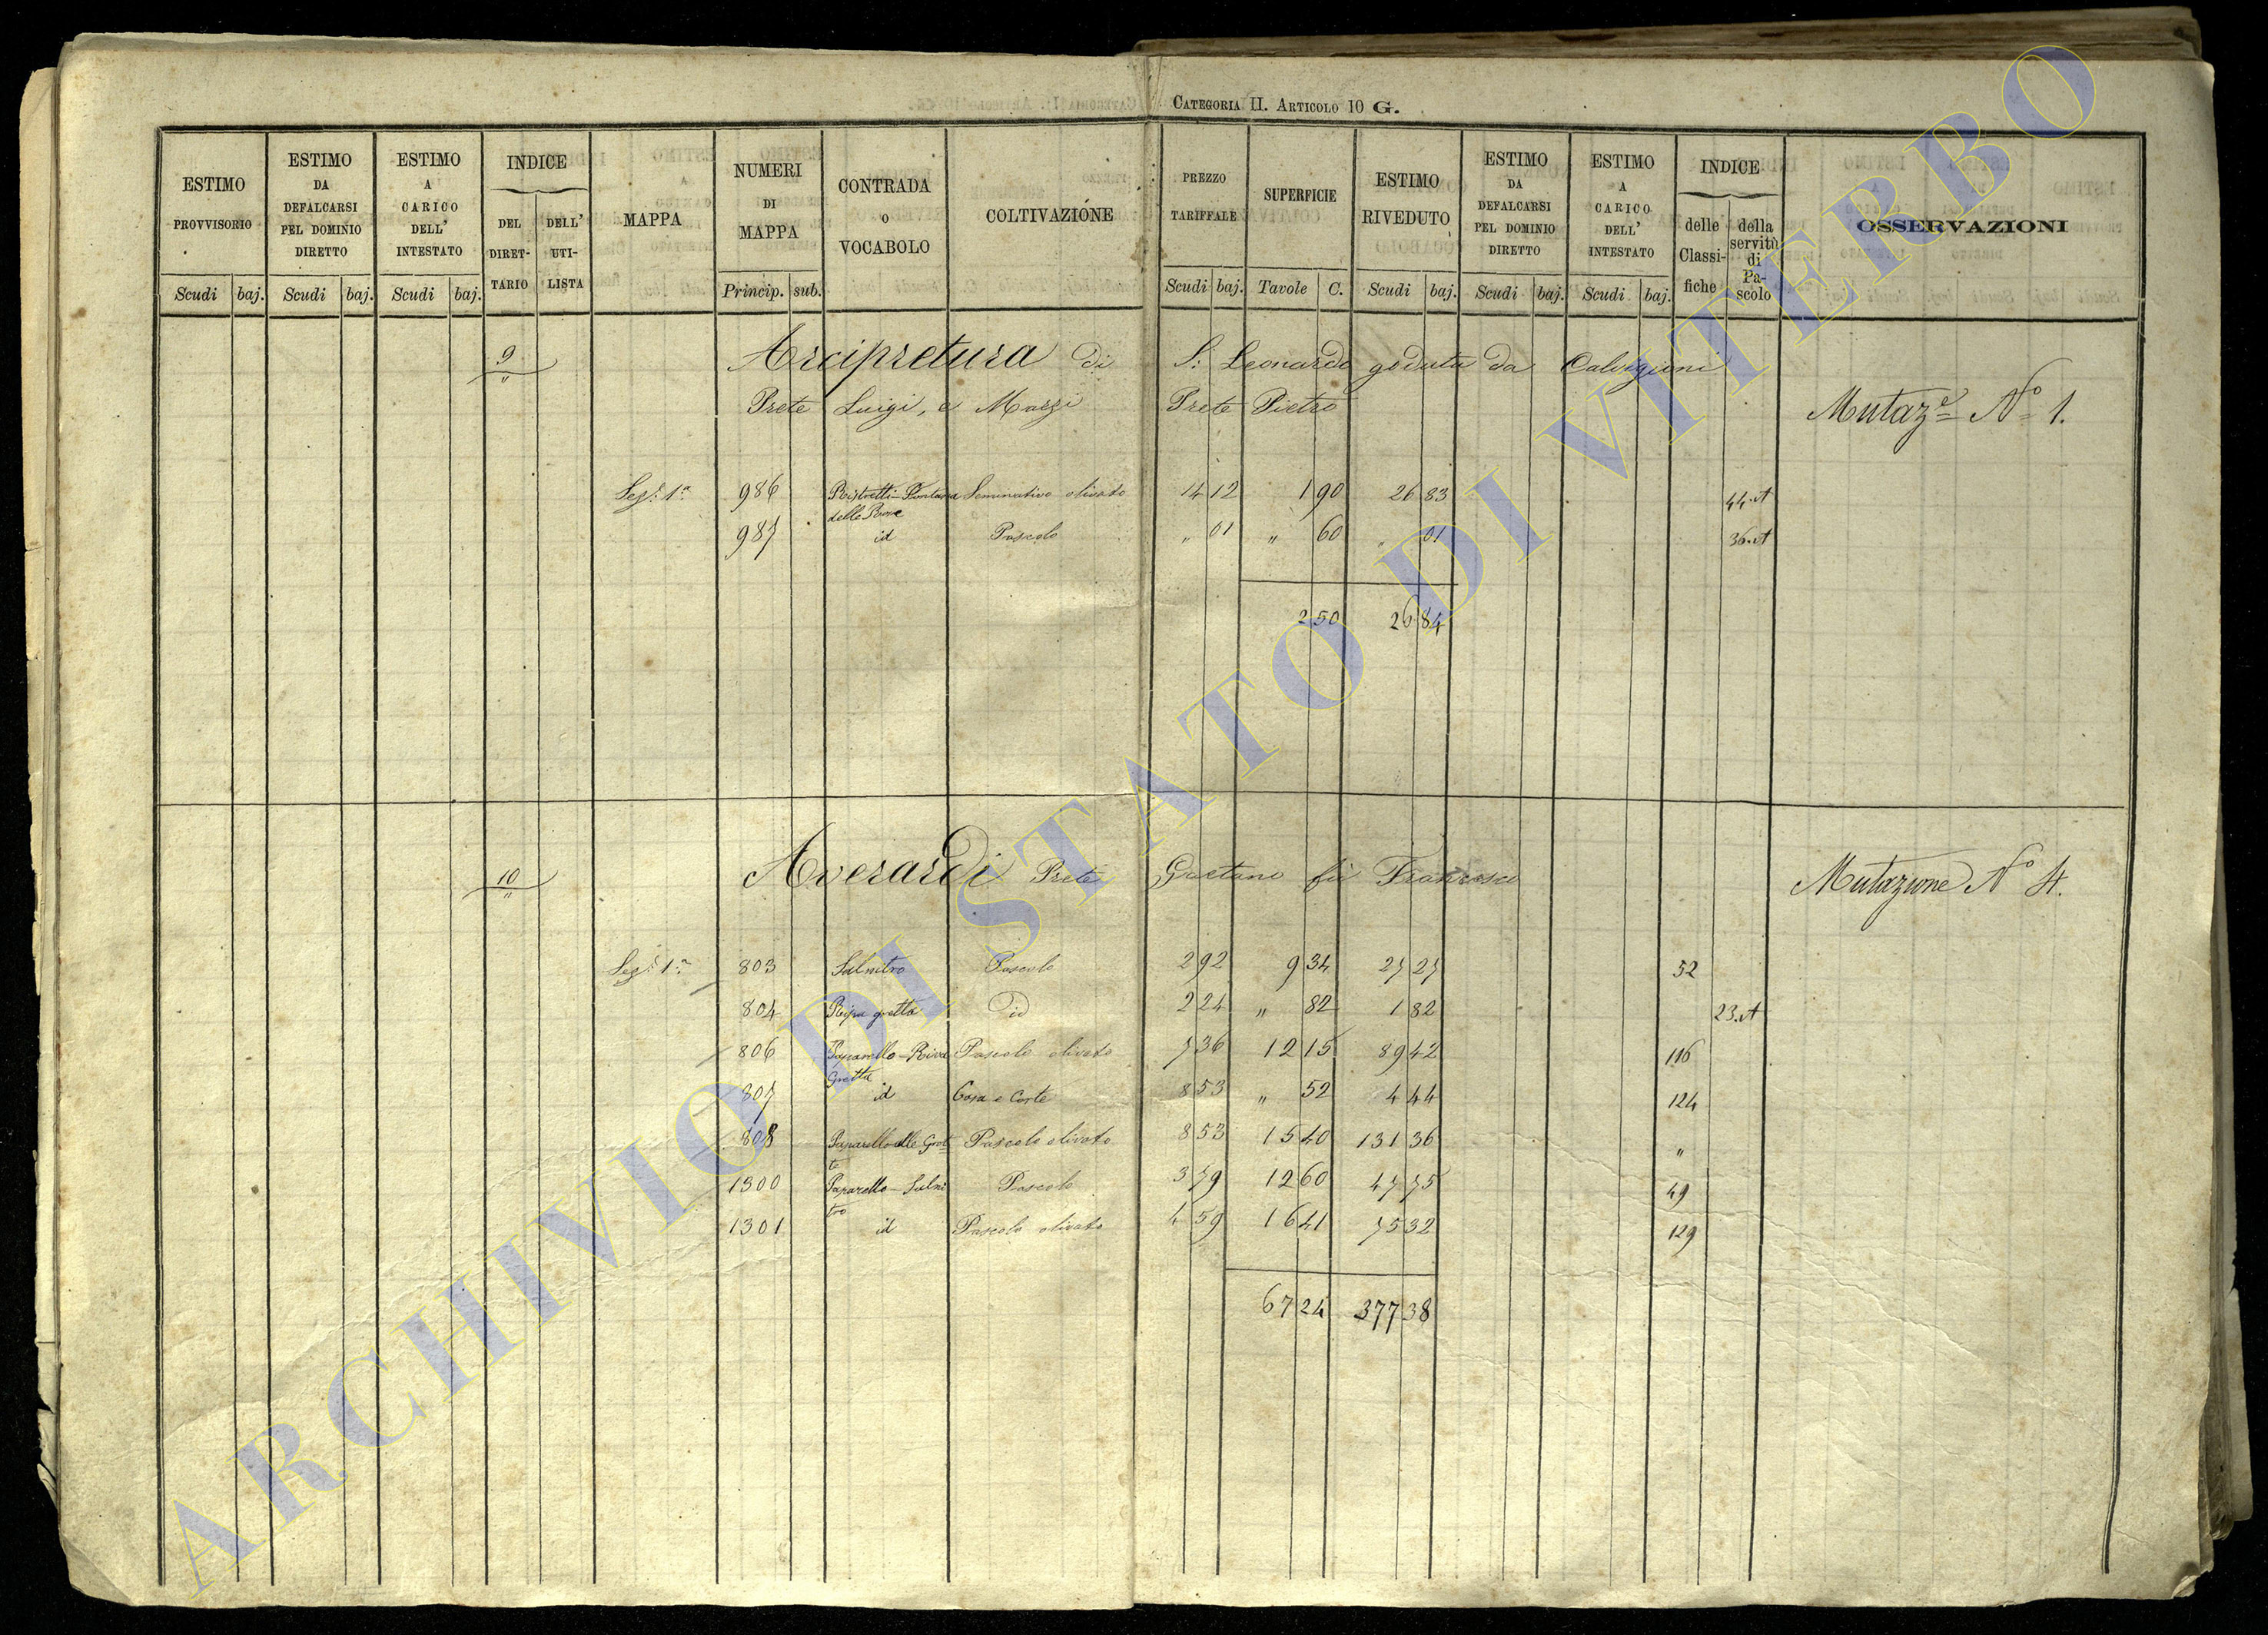 CATEGORIA II. ARTICOLO 10 G.
ESTIMO PROVVISORIO
ESTIMO DA DEFALCARSI PEL DOMINIO DIRETTO
ESTIMO A CARICO DELL' INTESTATO
INDICE
DEL DIRET-TARIO
DELL' UTI-LISTA
MAPPA
NUMERI DI MAPPA
CONTRADA O VOCABOLO
COLTIVAZIONE
PREZZO TARIFFALE
SUPERFICIE
ESTIMO RIVEDUTO
ESTIMO DA DEFALCARSI PEL DOMINIO DIRETTO
ESTIMO A CARICO DELL' INTESTATO
INDICE
delle Classi-fiche
della servitù di Pa-scolo
OSSERVAZIONI
Scudi baj. Scudi baj. Scudi baj. Princip. sub. Scudi baj. Tavole C. Scudi baj. Scudi baj. Scudi baj.
9 Arcipretura di S. Leonardo goduta da Calvigioni
" Prete Luigi, e Marzi Prete Pietro Mutaz.e N.o 1.
Sez.e 1.a 986 Ristretti - Fontana delle Prove Seminativo olivato 14 12 1 90 26 83 44.A
987 id Pascolo " 01 " 60 " 01 36.A
2 50 26 84
10 Averardi Prete Gaetano fù Francesco Mutazione N.o 4.
"
Sez.e 1.a 803 Salnitro Pascolo 2 92 9 34 27 27 52
804 Ripa gretta id 2 24 " 82 1 82 23.A
806 Paparello - Riva Gretta Pascolo olivato 7 36 12 15 89 42 116
807 id Casa e Corte 8 53 " 52 4 44 124
808 Paparello alle Grot-te Pascolo olivato 8 53 15 40 131 36 "
1300 Paparello - Salni tro Pascolo 3 79 12 60 47 75 49
1301 id Pascolo olivato 4 59 16 41 75 32 129
67 24 377 38
ARCHIVIO DI STATO DI VITERBO